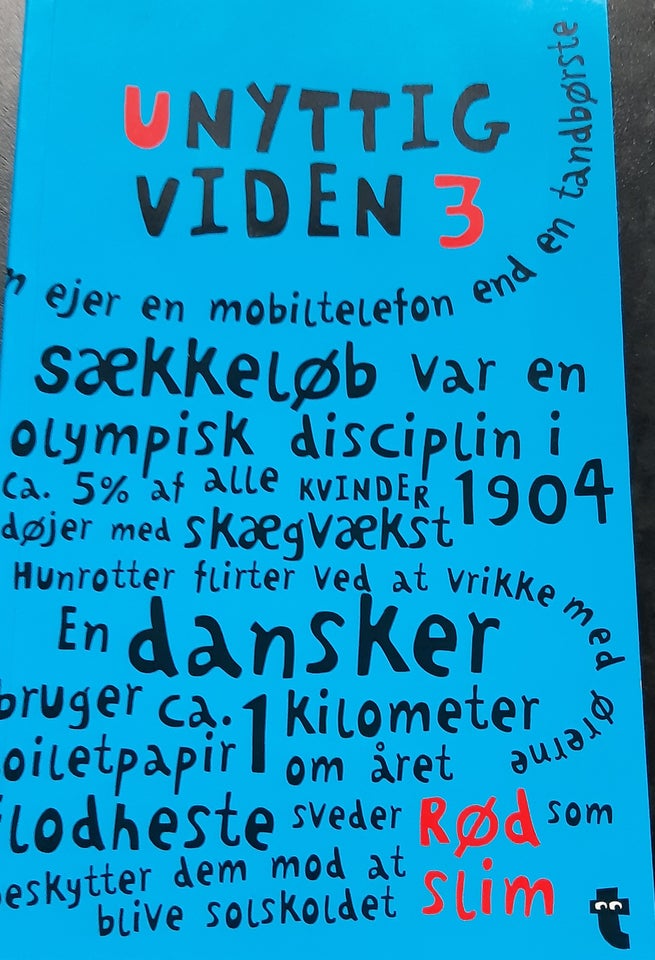 UNYTTIG
VIDEN 3
n ejer en mobiltelefon end en tandbørste
sækkeløb var en
olympisk disciplin i
1904
ca. 5% af alle KVINDER
døjer med skægvækst
Hunrotter flirter ved at vrikke med ørerne
En dansker
bruger ca. 1 kilometer
oiletpapir om året
flodheste sveder RØd som
eskytter dem mod at slim
blive solskoldet
t